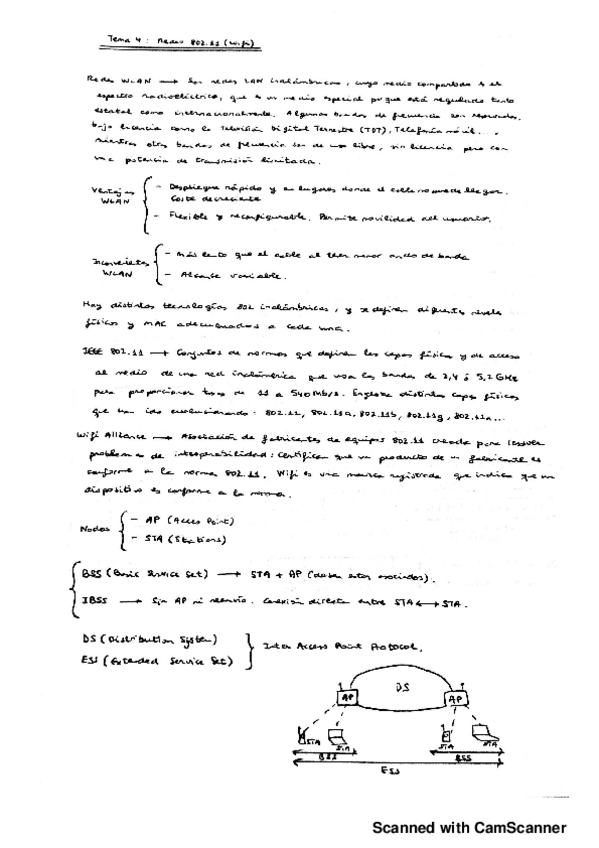 Tema 4: Redes 802.11 (Wifi)
Redes WLAN → Son redes LAN inalámbricas, cuyo medio compartido es el
espectro radioeléctrico, que es un medio especial porque está regulado tanto
estatal como internacionalmente. Algunas bandas de frecuencia son reservadas,
bajo licencia como la Televisión Digital Terrestre (TDT), Telefonía móvil...
mientras otras bandas de frecuencia son de uso libre, sin licencia pero con
una potencia de transmisión limitada.
Ventajas WLAN
- Despliegue rápido y en lugares donde el cable no puede llegar.
Coste decreciente
- Flexible y reconfigurable. Permite movilidad del usuario.
Inconvenientes WLAN
- Más lento que el cable al tener menor ancho de banda
- Alcance variable.
Hay distintas tecnologías 802 inalámbricas, y se definen diferentes niveles
físicos y MAC adecuados a cada una.
IEEE 802.11 → Conjuntos de normas que definen las capas física y de acceso
al medio de una red inalámbrica que usa las bandas de 2,4 ó 5,2 GHz
para proporcionar tasas de 11 a 540 Mb/s. Engloba distintas capas físicas
que han ido evolucionando: 802.11, 802.11a, 802.11b, 802.11g, 802.11n...
Wifi Alliance → Asociación de fabricantes de equipos 802.11 creada para resolver
problemas de interoperabilidad: certifican que un producto de un fabricante es
conforme a la norma 802.11. Wifi es una marca registrada que indica que un
dispositivo es conforme a la norma.
Nodos
- AP (Acces Point)
- STA (Stations)
BSS (Basic Service Set) → STA + AP (deben estar asociados).
IBSS → Sin AP ni reenvío. Conexión directa entre STA ↔ STA.
DS (Distribution System)
ESS (Extended Service Set)
Inter Access Point Protocol.
DS
AP AP
STA STA STA STA
BSS BSS
ESS
Scanned with CamScanner